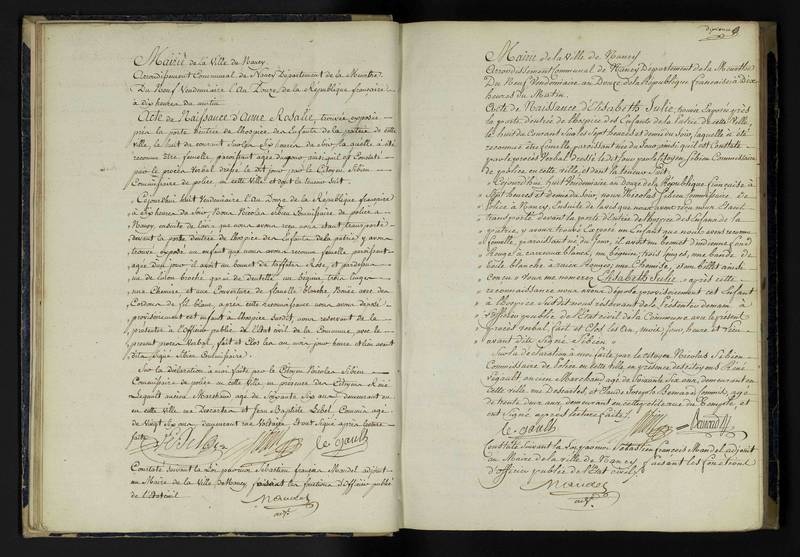 Mairie de la Ville de Nancy
Arrondissement Communal de Nancy Département de la Meurthe
Du Neuf Vendemiaire l'An Douze de la République française
à dix heures du matin
Acte de Naissance d'Anne Rosalie, trouvée exposée
près la porte d'entrée de l'hospice des Enfants de la patrie de cette
ville, le huit du courant sur les Six heures du Soir, laquelle a été
reconnue être femelle, paroissant agée du jour, ainsi qu'il est Constaté
par le procès Verbal dressé le dit jour par le Citoyen Sibien
Commissaire de police, en cette Ville, et dont la teneur suit.
Cejourd'hui huit Vendemiaire l'An Douze de la République française
à Six heures du Soir, Nous Nicolas Sibien Commissaire de police à
Nancy, ensuite de l'avis que nous avons reçu nous étant transporté
devant la porte d'entrée de l'hospice des Enfants de la patrie, y avons
trouvé exposé un Enfant que nous avons reconnu femelle paroissant
agé du jour il avoit un bonnet de taffetas Rose, et pardessus
un de Calon broché garni de dentelle, un béguin, trois linges
une Chemise et une Couverture de flanelle blanche, bordée avec des
Cordons de fil blanc, après cette reconnaissance nous avons déposé
provisoirement cet enfant à l'hospice Susdit, nous reservant de la
presenter à l'Officier public de l'Etat civil de la Commune, avec le
present procès Verbal, fait et Clos les an, mois jour heure et lieu avant
dits, signé Sibien Commissaire.
Sur la Déclaration à moi faite par le Citoyen Nicolas Sibien
Commissaire de police en cette ville, en présence des Citoyens René
Legault ancien Marchand agé de Soixante Six ans, demeurant en
en cette ville rue Descartes et Jean Baptiste Lebel Commis agé
de Vingt Six ans, demeurant rue Voltaire, et ont Signé après lecture
faite
Sibien
le gault
Constaté Suivant la Loi, par moi Sébastien françois Mandel adjoint
au Maire de la Ville de Nancy faisant les fonctions d'Officier public
de l'Etat civil
Mandel
adj.
Mairie de la Ville de Nancy
Arrondissement Communal de Nancy Département de la Meurthe
Du Neuf Vendemiaire an Douze de la République française à Dix
heures du Matin.
Acte de Naissance d'Elisabeth Julie, trouvée Exposée près
la porte d'entrée de l'hospice des Enfants de la Patrie de cette Ville,
le huit du Courant Sur les Sept heures et demie du Soir, laquelle a été
reconnue être femelle, paroissant née du Jour, ainsi qu'il est Constaté
par le procès Verbal dressé le dit jour par le Citoyen Sibien Commissaire
de police, en cette ville, et dont la teneur Suit.
" Cejourd'hui huit Vendemiaire an douze de la République française à
" Sept heures et demie du Soir, nous Nicolas Sibien Commissaire de
" Police à Nancy, Ensuite de l'avis que nous avons reçu nous étant
" transporté devant la porte d'Entrée de l'hospice des Enfans de la
" patrie, y avons trouvé Exposé un Enfant que nous avons reconnu
" femelle, paroissant né du Jour, il avoit un bonnet d'indienne fond
" Rouge à carreaux blancs, un béguin, trois linges, une bande de
" toile blanche à raies Rouges, une Chemise, et un billet ainsi
" Concu " Vous me nommerez Elisabeth Julie, après cette
" reconnoissance nous avons déposé provisoirement cet Enfant
" à l'hospice Susdit nous réservant de la Présenter demain à
" l'officier public de l'Etat civil de la Commune avec le présent
" procès verbal, fait et Clos les an, mois, jour, heure et lieu
" avant dits Signé Sibien
Sur la déclaration à moi faite par le citoyen Nicolas Sibien
Commissaire de Police en cette ville, en présence des citoyens René
Legault ancien Marchand agé de Soixante Six ans, demeurant en
cette ville, rue Descartes, et Claude Joseph Renard Commis, agé
de trente deux ans, demeurant en cette ville rue du Temple, et
ont Signé après lecture faite
le gault
Renard
Constaté Suivant la Loi par moi Sébastien françois Mandel adjoint
au Maire de la ville de Nancy faisant les fonctions
d'officier public de l'Etat civil
Mandel
adj.